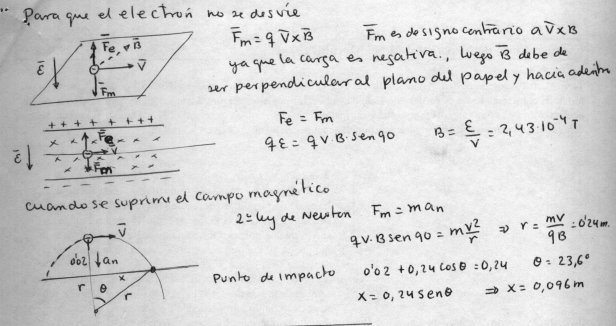 Para que el electrón no se desvíe
F̄m = q V̄ x B̄   F̄m es de signo contrario a V̄ x B
ya que la carga es negativa., luego B̄ debe de
ser perpendicular al plano del papel y hacia adentro
ε̄ F̄e B̄ V̄ F̄m
Fe = Fm
qε = qV·B·sen90   B = ε/V = 2,43·10⁻⁴ T
+ + + + + + + +
ε̄ F̄e V F̄m
cuando se suprime el campo magnético
2ª ley de Newton   Fm = m an
qV·B sen 90 = m v²/r ⇒ r = mv/qB = 0'24 m.
V̄ 0'02 an r θ x r
Punto de impacto   0'02 + 0,24 cosθ = 0,24   θ = 23,6°
x = 0,24 senθ ⇒ x = 0,096 m